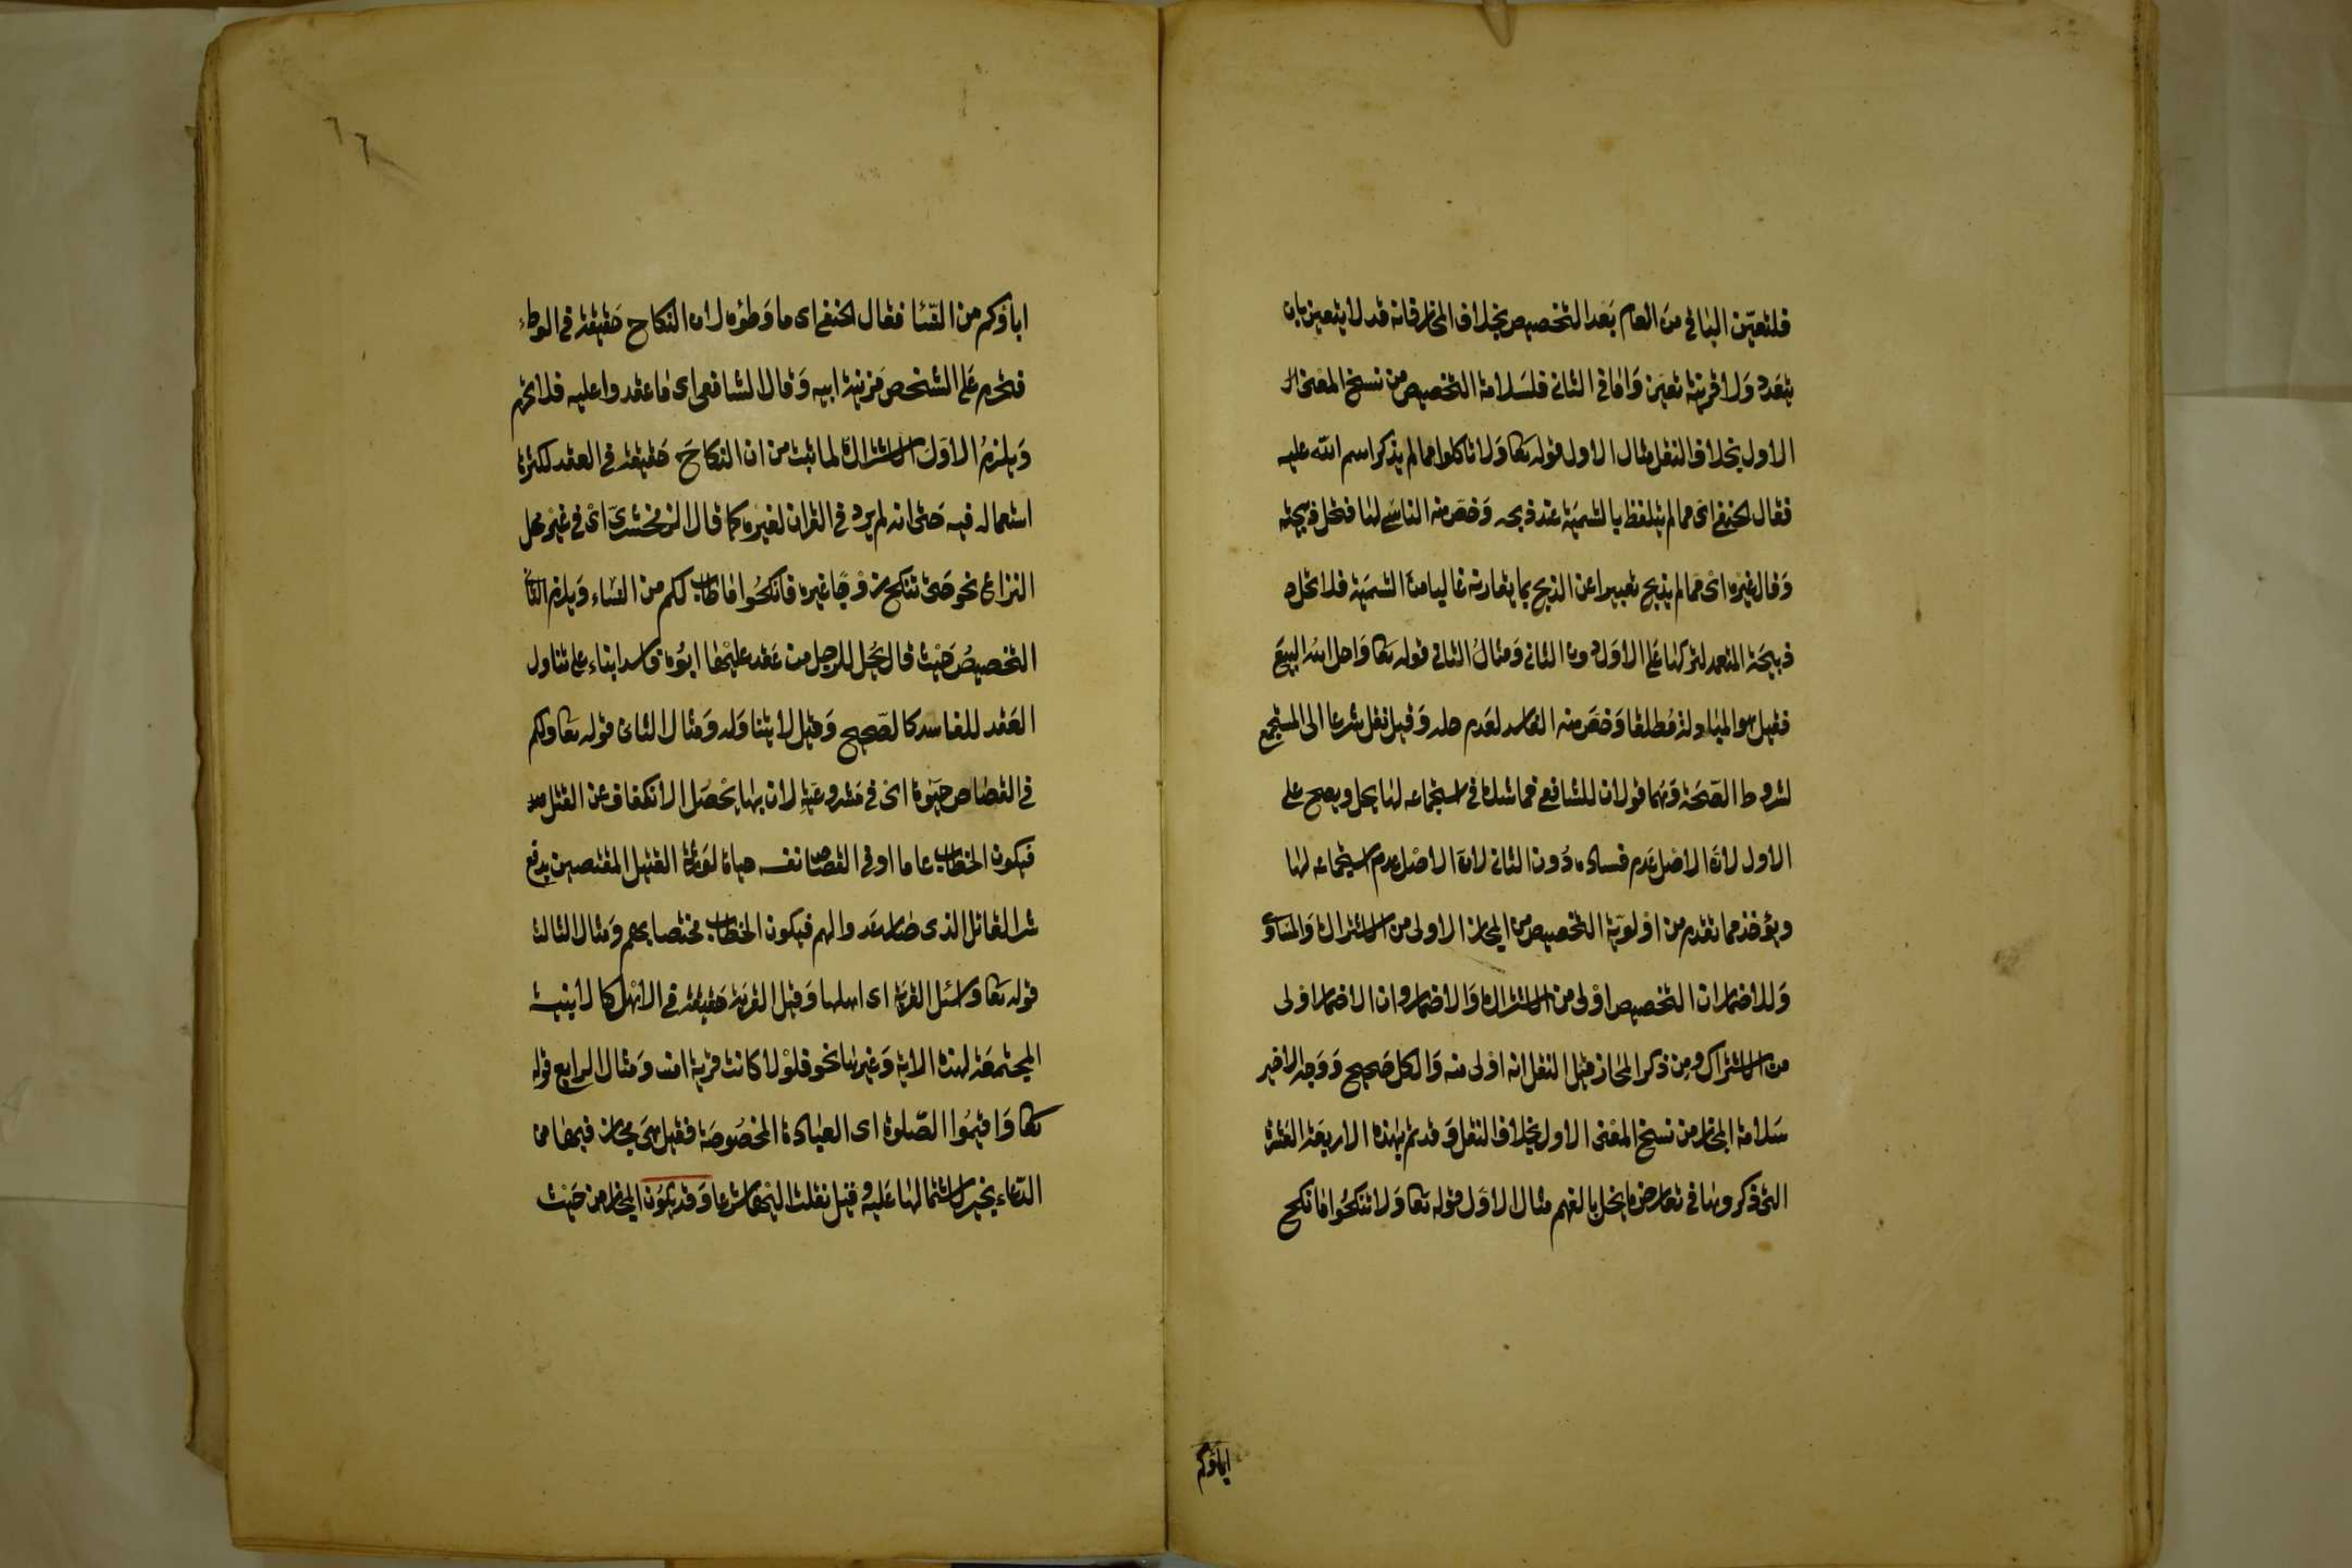 فلتعيّن الباقي من العام بَعد التخصيص بخلاف المجاز فانه قد لا يتعين بان
يتعَدد وَلا قرينة تعيّن وَاما في الثاني فلسَلامة التخصيص من نسخ المعنى
الاول بخلاف النقل مثال الاول قوله تعا وَلا تاكلوا مما لم يذكر اسم الله عليه
فقال الحنفي اى مما لم يتلفظ بالتسميَة عند ذبحه وَخصّ منه الناسي لها فتحل ذبيحته
وَقال غيره اى مما لم يذبح تعبيرا عن الذبح بما يقارنه غالبا منَ التسميَة فلا تحل
ذبيحَة المتعمد لتركها عَلى الاوَل دون الثاني وَمثالُ الثاني قوله تعا وَاحل الله البيَع
فقيل هو المبادلة مُطلقا وَخصّ منه الفاسد لعَدم حله وَقيل نقل شرعا الى المستجمع
لشروط الصّحَة وَهما قولان للشافعي فما شك في استجماعه لها يحل ويصح على
الاول لانّ الاصْل عَدم فساده دُون الثاني لانّ الاصْل عدم استجماعه لها
ويؤخذ مما تقدم من اوْلويّة التخصيص من المجاز الاولى من الاشتراك وَالمسَاوى
وَللاضمار ان التخصيص اوْلى من الاشتراك وَالاضمار وان الاضمار اوْلى
من الاشتراك ومن ذكر المجاز قبل النقل انه اوْلى منه وَالكل صَحيح وَوَجه الاخير
سَلامة المجاز من نسخ المعْنى الاول بخلاف النقل وَقد تم بهذه الاربعَة العَشرة
التي ذكروها في تعارض ما يخل بالفهم مثال الاوّل قوله تعا وَلا تنكحُوا ما نكح
اباؤكم
اباؤكم من النّسَا فقال الحنفي اى ما وَطؤه لان النكاح حَقيقة في الوطء
فتحرم عَلى الشخص مَزنية ابيه وَقال الشافعى اى مَا عقدوا عليه فلا تحرم
وَيلزمُ الاوّل الاشتراك لما ثبت من ان النكاحَ حَقيقة في العقد لكثرة
استعماله فيه حَتى انه لم يرد في القران لغيره كما قال الزمخشرى اىْ في غيْر محل
النزاع نحو حَتى تنكح زوْجًا غيره فانكحُوا مَا طاب لكم من النسَاء وَيلزم الثاني
التخصيصُ حَيْث قال يحل للرجل من عَقد عليْها ابوُه فاسدا بناء على تناول
العَقد للفاسد كالصّحيح وَقيل لا يتناوَله وَمثال الثانى قوله تعَا ولكم
في القصَاص حَيَوة اىْ في مَشروعيّته لان بها يحْصَل الانكفاف عن القتل
فيكون الخطاب عاما او في القصاص نفسه حياة لوَرثة القتيل المقتصين بدفع
شر القاتل الذى صَار عَدوا لهم فيكون الخطاب مختصا بهم وَمثال الثالث
قوله تعَا وَاسْئل القريَة اى اهلها وَقيل القريَة حَقيقة في الاهْل كالابنية
المجتمعَة لهذه الاية وَغيرها نحو فلوْلا كانت قرية امنت وَمثال الرابع قوله
تعَا وَاقيمُوا الصّلوة اى العبَادة المخصُوصَة فقيل هيَ مجاز فيهَا من
الدّعاء بخير لاشتمالها عَليه وقيل نقلت اليْها شرعا وَقد يكوُن المجاز من حَيْث